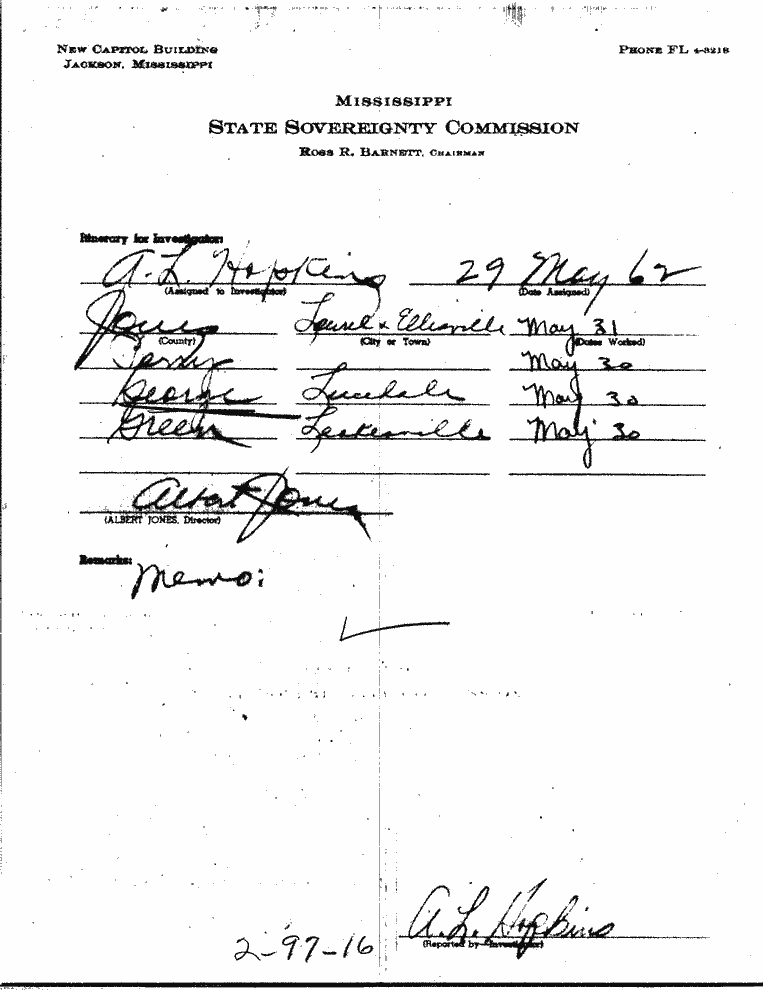 NEW CAPITOL BUILDING
JACKSON, MISSISSIPPI
PHONE FL 4-3218
MISSISSIPPI
STATE SOVEREIGNTY COMMISSION
ROSS R. BARNETT, CHAIRMAN
Itinerary for Investigator:
A. L. Hopkins 29 May 62
(Assigned to Investigator) (Date Assigned)
Jones Laurel & Ellisville May 31
(County) (City or Town) (Dates Worked)
Perry May 30
George Lucedale May 30
Green Leakesville May 30
Albert Jones
(ALBERT JONES, Director)
Remarks:
Memo:
A. L. Hopkins
(Reported by Investigator)
2-97-16